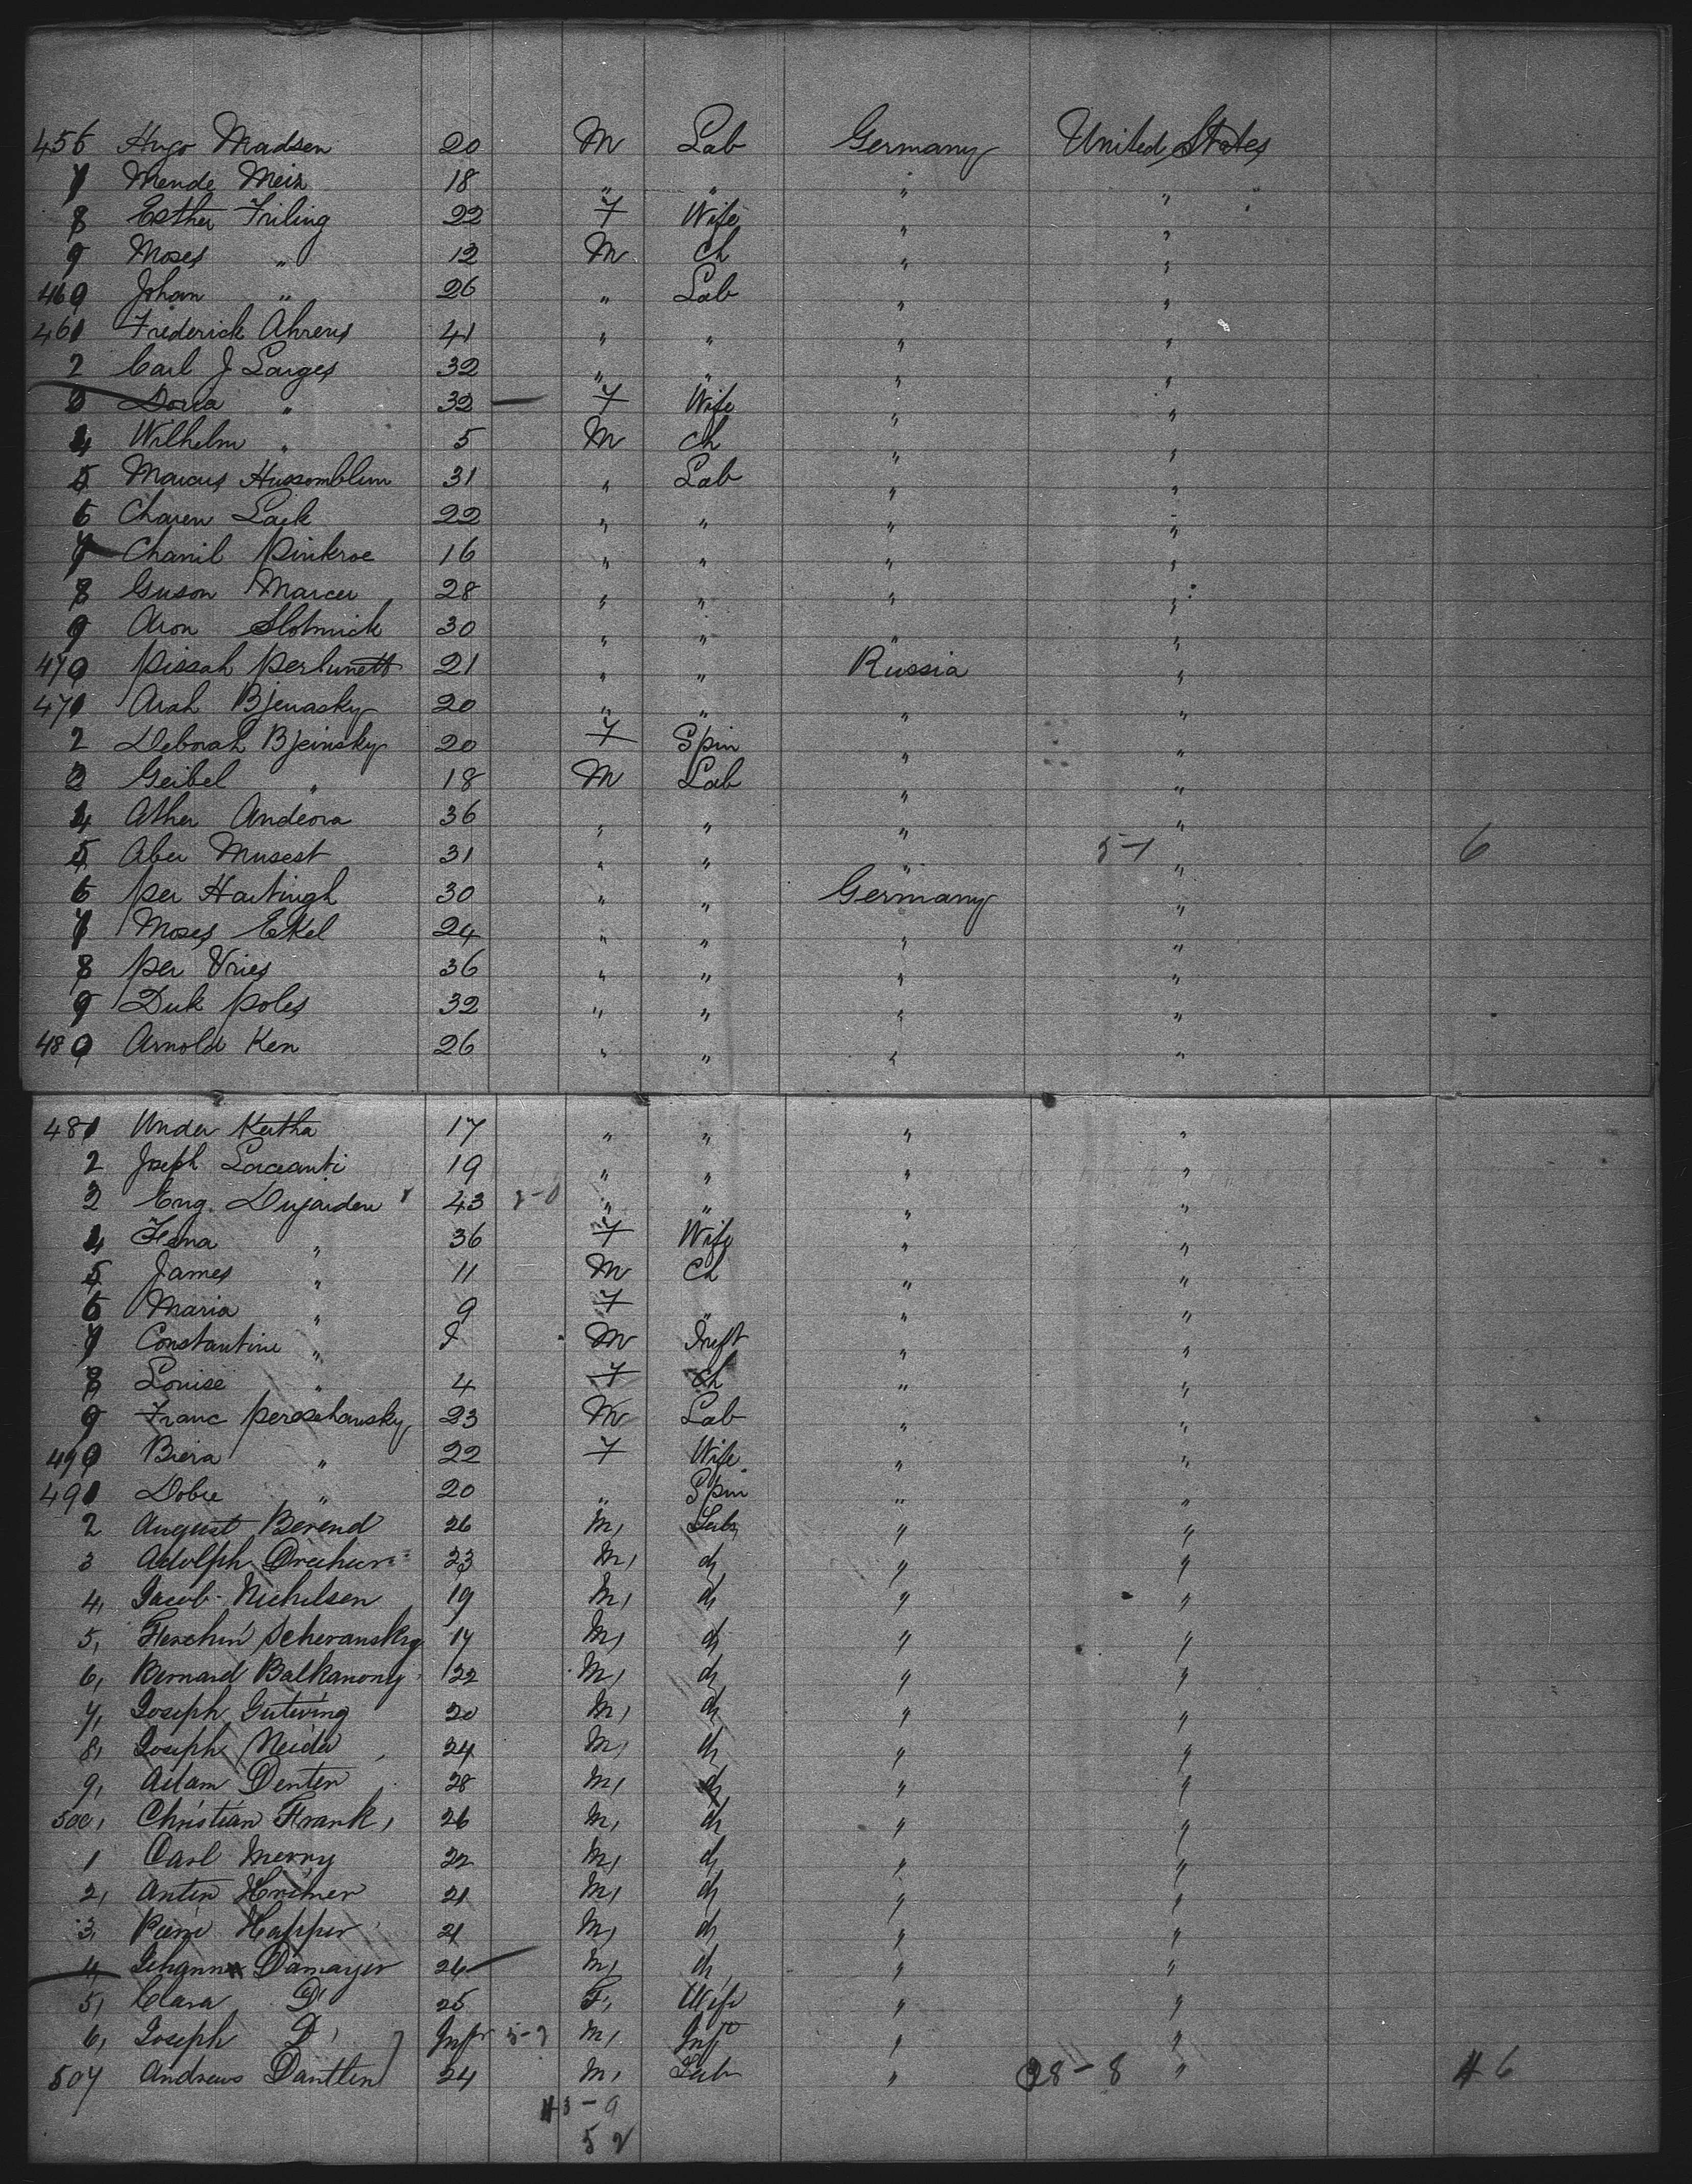 456 Hugo Madsen 20 M Lab Germany United States
7 Mende Meir 18 " " " "
8 Esther Friling 22 F Wife " "
9 Moses " 12 M Ch " "
460 Johan " 26 " Lab " "
461 Frederick Ahrens 41 " " " "
2 Carl J Larges 32 " " " "
3 Dorra " 32 — F Wife " "
4 Wilhelm " 5 M Ch " "
5 Marcus 31 " Lab " "
6 Charen Laik 22 " " " "
7 Chanil Pinkroe 16 " " " "
8 Guson Marcer 28 " " " "
9 Aron Slotnick 30 " " " "
470 Pissah Perlunett 21 " " Russia "
471 Arah Bjenasky 20 " " " "
2 Deborah Bjeinsky 20 F Spin " "
3 Geibel " 18 M Lab " "
4 Ather Andeora 36 " " " "
5 Aber Musest 31 " " " 5-1 " 6
6 Per Hartingh 30 " " Germany "
7 Moses Ekel 24 " " " "
8 Per Vries 36 " " " "
9 Duk Poles 32 " " " "
480 Arnold Ken 26 " " " "
481 Under Kertha 17 " " " "
2 Joseph 19 " " " "
3 Eug. Dujarden 43 " " " "
4 Fema " 36 F Wife " "
5 James " 11 M Ch " "
6 Maria " 9 F " " "
7 Constantine " M Inft " "
8 Louise " 4 F Ch " "
9 Franc Peroschansky 23 M Lab " "
490 Biera " 22 F Wife " "
491 Dobre " 20 " Spin " "
2 August Berend 26 M, Lab, " "
3 Adolph 23 M, do " "
4, Jacob Nichelsen 19 M, do " "
5, Scheranskg 17 M, do " "
6, Bernard Balkanony 22 M, do " "
7, Joseph Gutwing 20 M, do " "
8, Joseph Neider 24 M, do " "
9, Adam Denter 28 M, do " "
500, Christian Frank, 26 M, do " "
1 Carl Merny 22 M, do " "
2, Anten 21 M, do " "
3, Pierre Happer 21 M, do " "
4, Johann Damayer 26 M, do " "
5, Clara Do 25 F, Wife " "
6, Joseph Do Inft M, Inft " "
507 Andrews Dantlin 24 M, Lab " 28-8 " 6
3-9
52